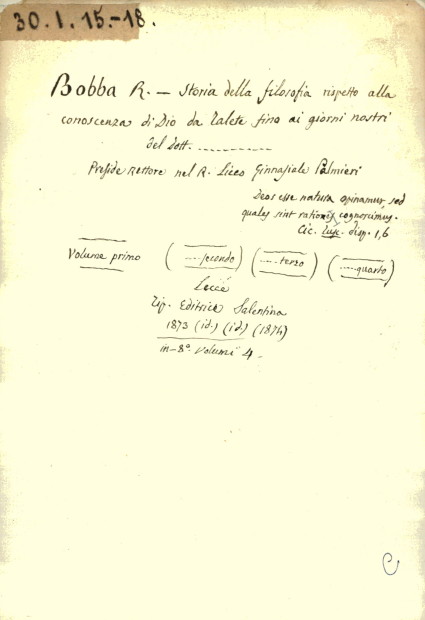 30. I. 15.-18.
Bobba R. — Storia della filosofia rispetto alla
conoscenza di Dio da Talete fino ai giorni nostri
del dott. ............
Preside Rettore nel R. Liceo Ginnasiale Palmieri
Deos esse natura opinamur, sed
quales sint ratione cognoscimus.
Cic. Tusc. disp. 1,6
Volume primo ( .....secondo) (.....terzo ) (.....quarto)
Lecce
Tip. Editrice Salentina
1873 (id.) (id.) (1874)
in-8° volumi 4.
C